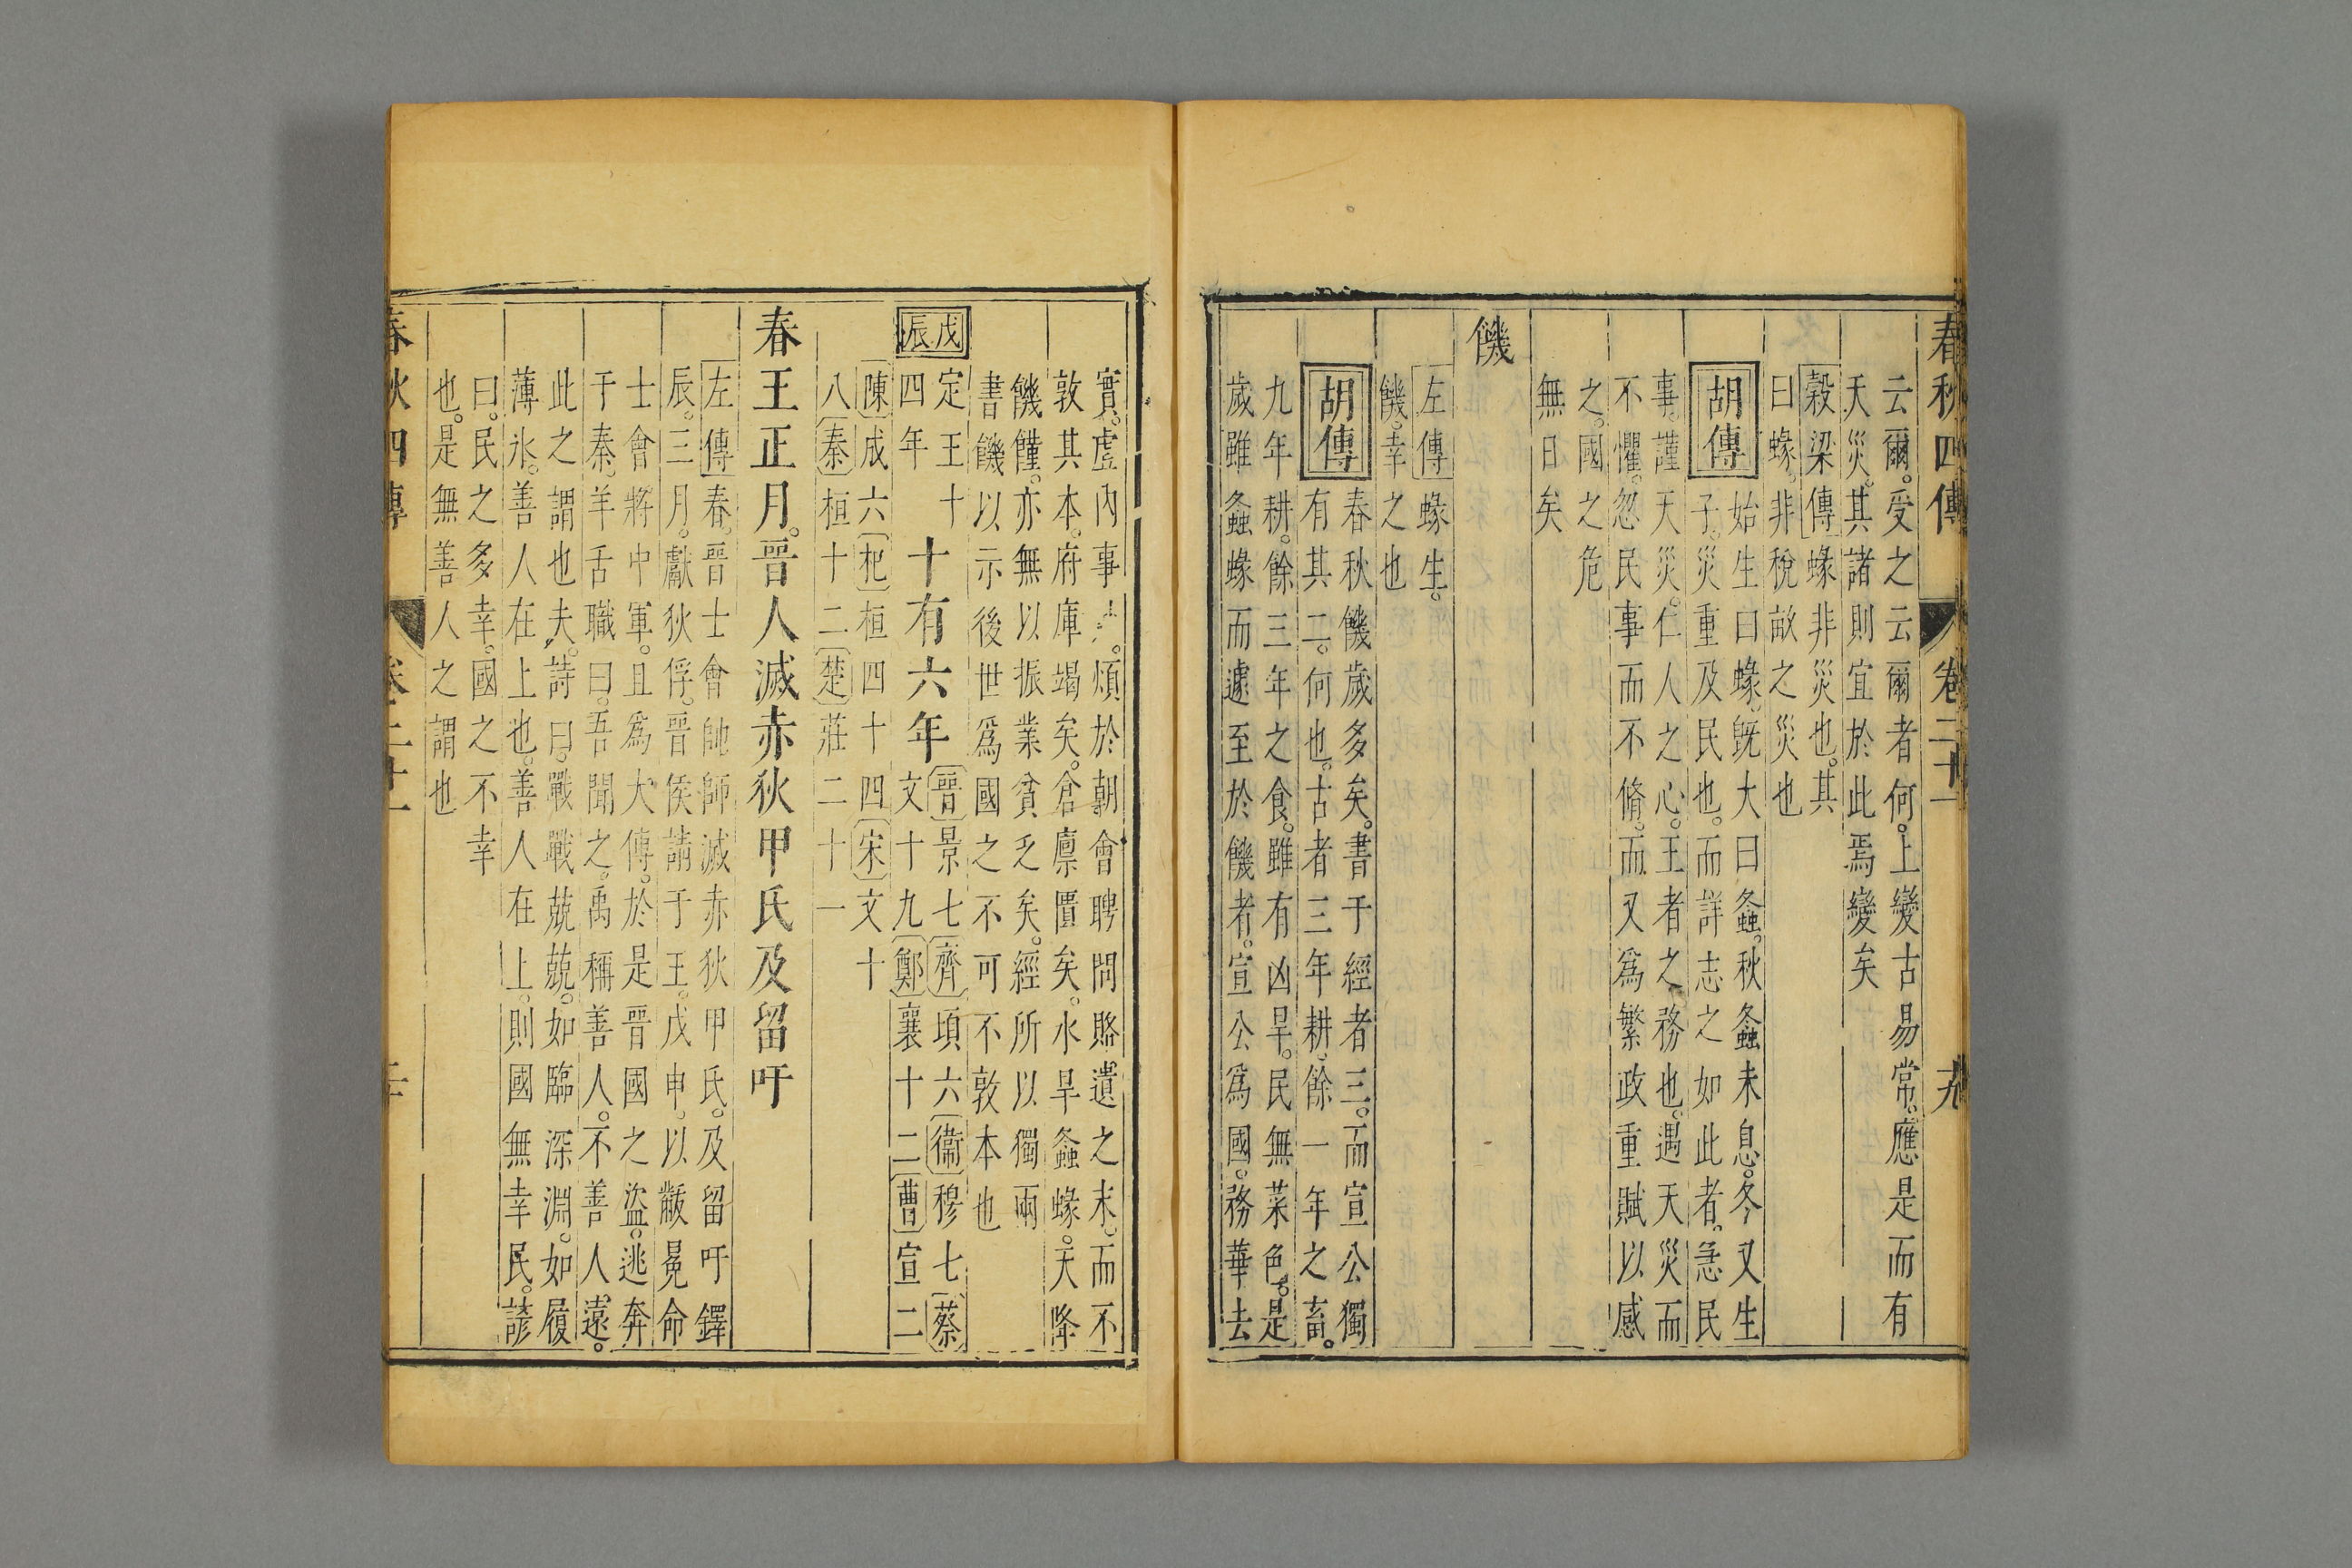 春秋四傳 卷二十一 十九
云爾。受之云爾者何。上變古易常。應是而有
天災。其諸則宜於此焉變矣
穀梁傳 蝝非災也。其
曰蝝。非稅畝之災也
胡傳 始生曰蝝。既大曰螽。秋螽未息。冬又生
子。災重及民也。而詳志之如此者。急民
事。謹天災。仁人之心。王者之務也。遇天災而
不懼。忽民事而不脩。而又爲繁政重賦以感
之。國之危
無日矣
饑
左傳 蝝生。
饑。幸之也
胡傳 春秋饑歲多矣。書于經者三。而宣公獨
有其二。何也。古者三年耕。餘一年之畜。
九年耕。餘三年之食。雖有凶旱。民無菜色。是
歲雖螽蝝而遽至於饑者。宣公爲國。務華去
實。虛內事。煩於朝會聘問賂遺之末。而不
敦其本。府庫竭矣。倉廩匱矣。水旱螽蝝。天降
饑饉。亦無以振業貧乏矣。經所以獨兩
書饑以示後世爲國之不可不敦本也
戊辰
定王十
四年
十有六年
晉 景七 齊 頃六 衞 穆七 蔡
文十九 鄭 襄十二 曹 宣二
陳 成六 杞 桓四十四 宋 文十
八 秦 桓十二 楚 莊二十一
春王正月。晉人滅赤狄甲氏及留吁
左傳 春。晉士會帥師滅赤狄甲氏。及留吁鐸
辰。三月。獻狄俘。晉侯請于王。戊申。以黻冕命
士會將中軍。且爲大傅。於是晉國之盜。逃奔
于秦。羊舌職曰。吾聞之。禹稱善人。不善人遠。
此之謂也夫。詩曰。戰戰兢兢。如臨深淵。如履
薄氷。善人在上也。善人在上。則國無幸民。諺
曰。民之多幸。國之不幸
也。是無善人之謂也
春秋四傳 卷二十一